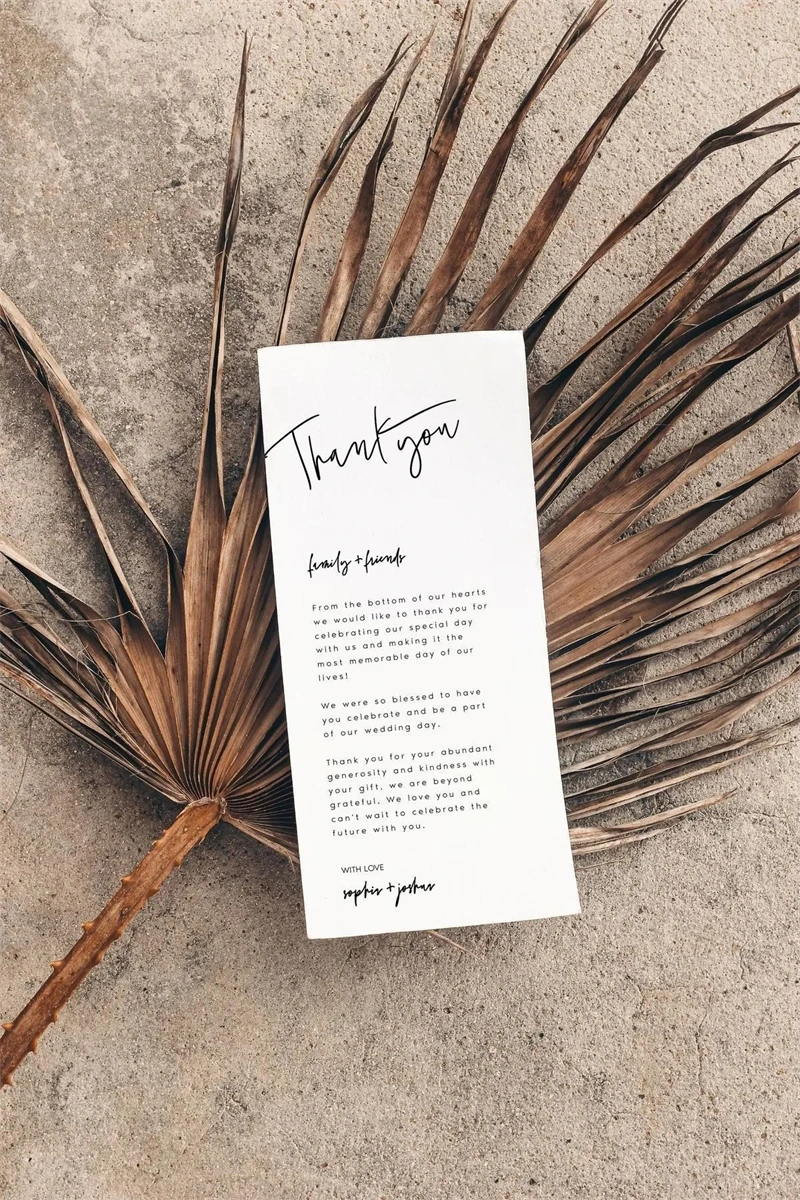 Thank you
family + friends
From the bottom of our hearts
we would like to thank you for
celebrating our special day
with us and making it the
most memorable day of our
lives!
We were so blessed to have
you celebrate and be a part
of our wedding day.
Thank you for your abundant
generosity and kindness with
your gift, we are beyond
grateful. We love you and
can't wait to celebrate the
future with you.
WITH LOVE
sophia + joshua